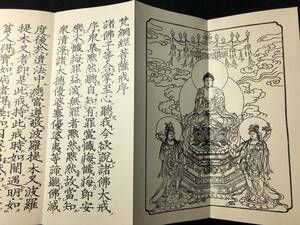 梵網經菩薩戒序
諸佛子等合掌至心聽我今欲說諸佛大戒
序衆集默然聽自知有罪當懺悔懺悔即安
樂不懺悔罪益深無罪者默然默然故當知
衆清淨諸大德優婆塞優婆夷等諦聽佛滅
度後於像法中應當尊敬波羅提木叉波羅
提木叉者即是此戒持此戒時如闇遇明如
貧得寶如病得